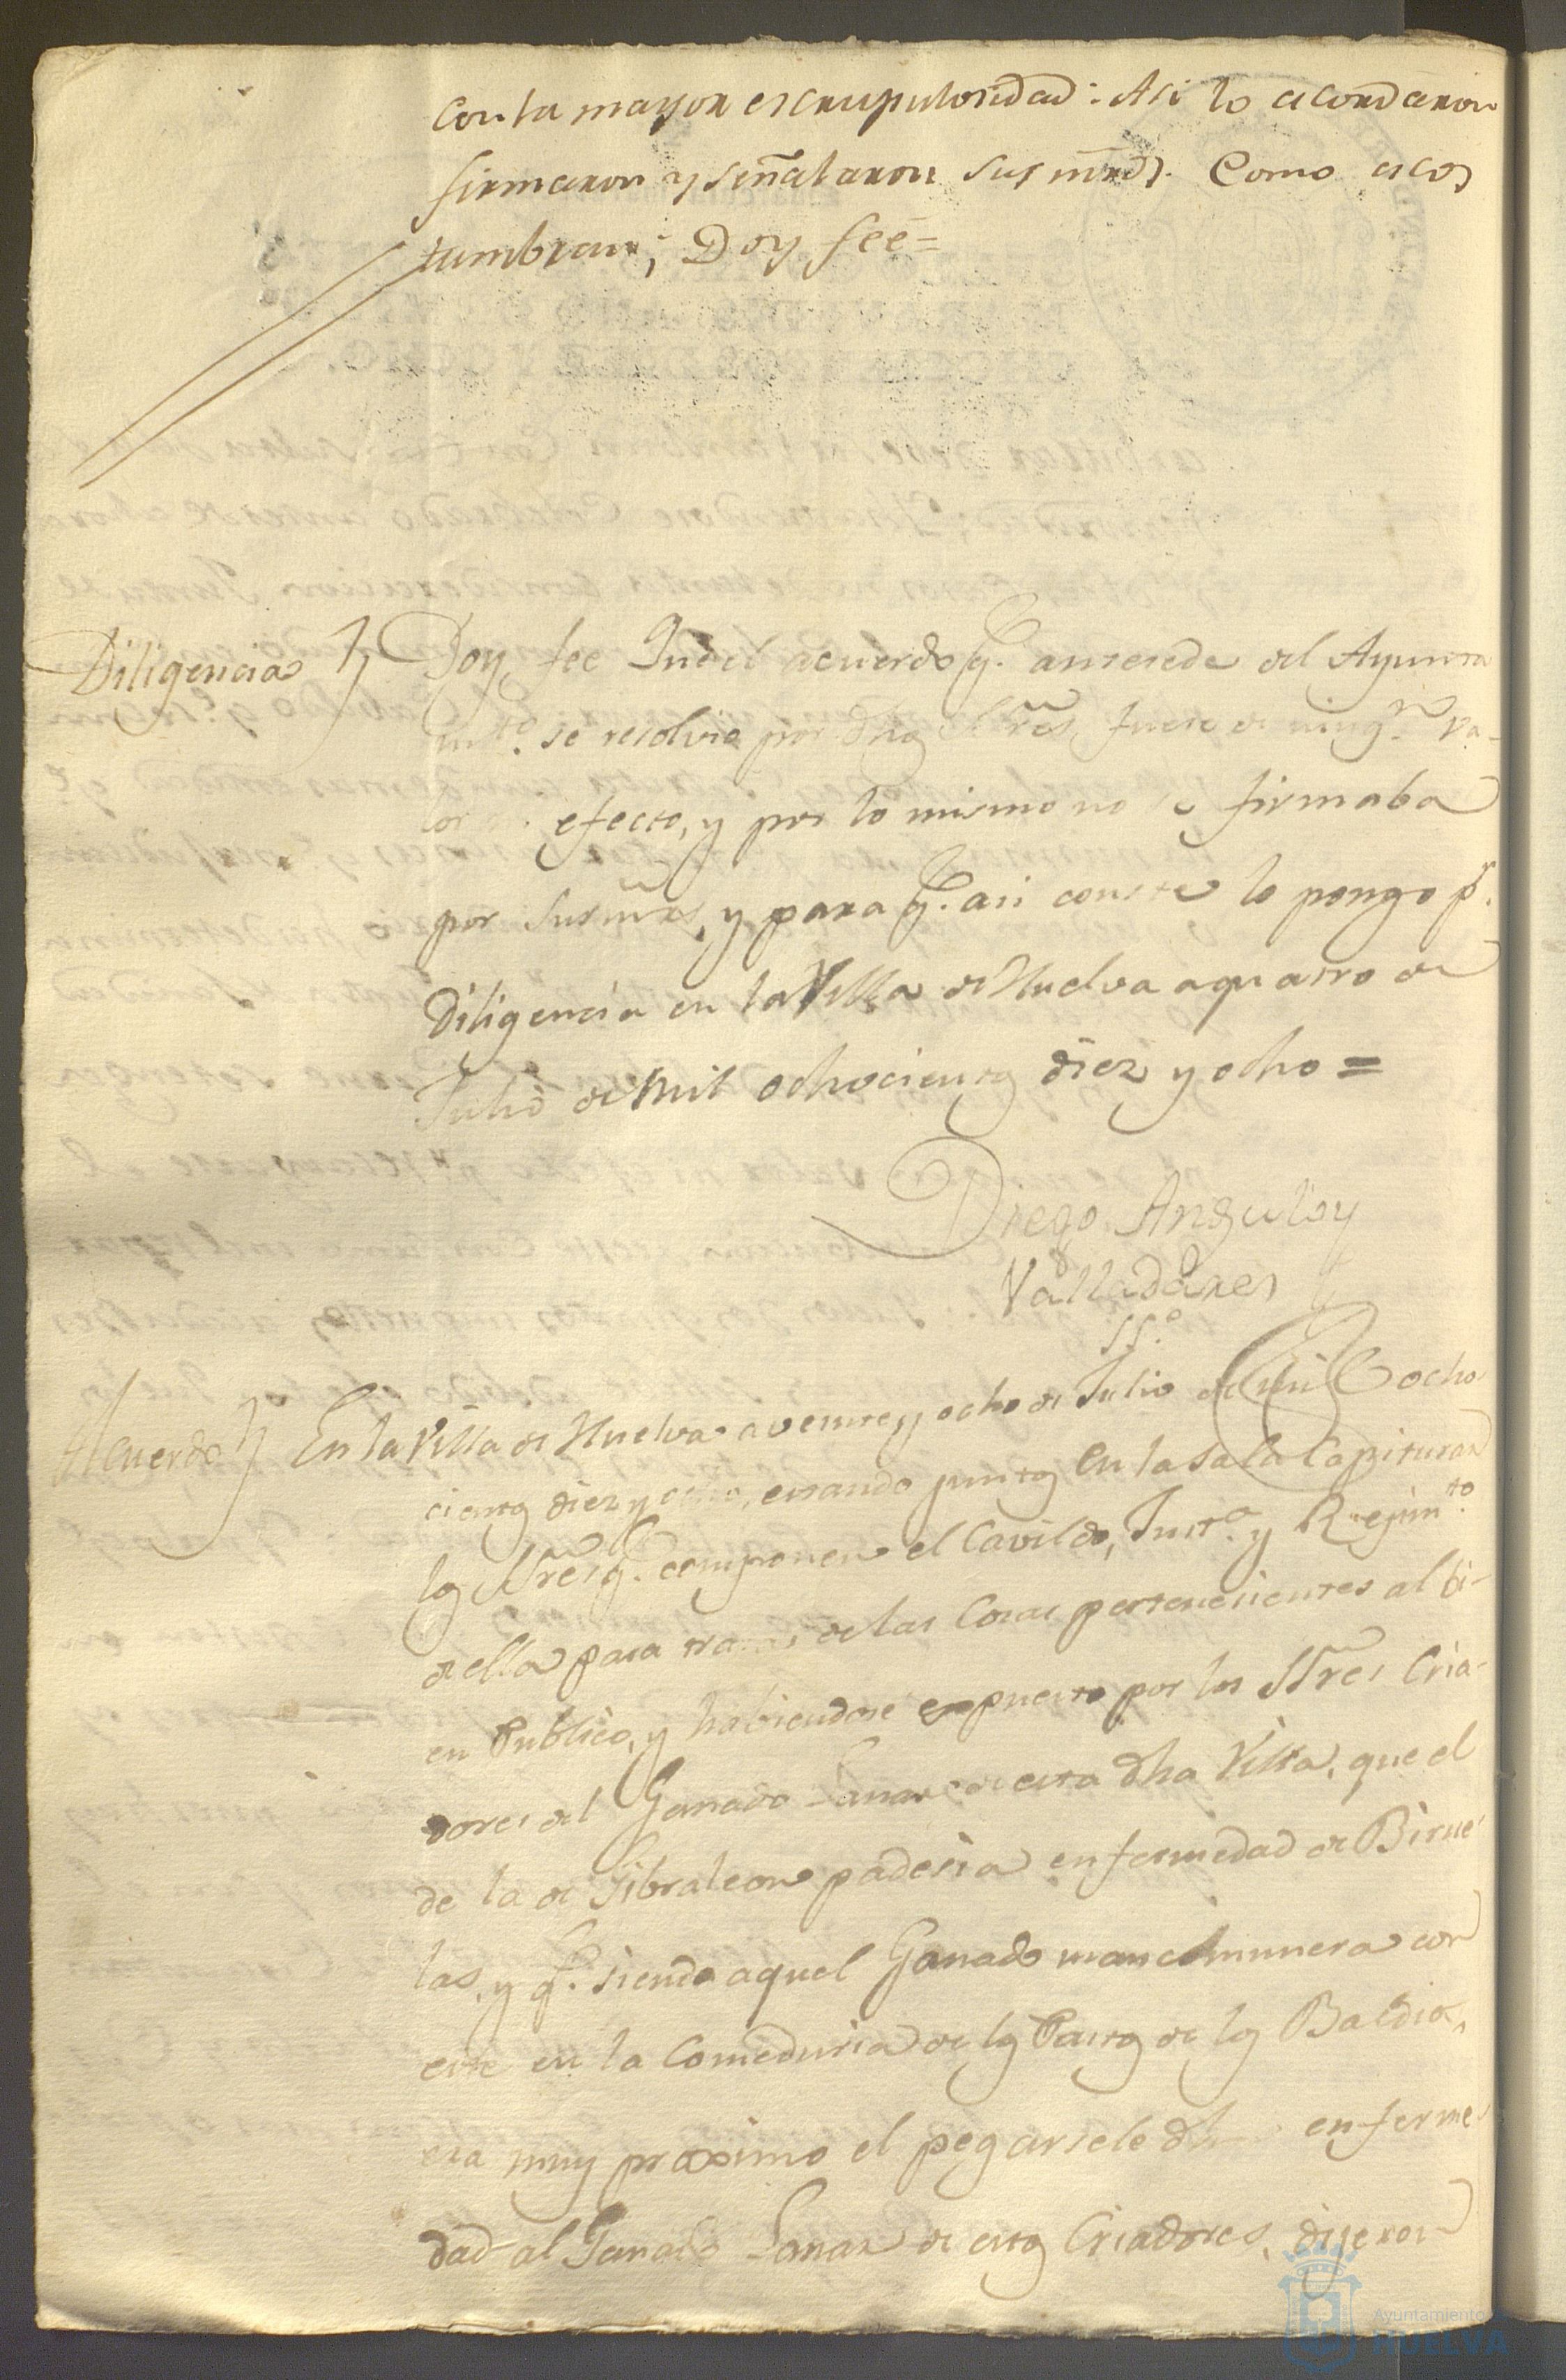 con la mayor escrupulosidad: Asi lo acordaron
firmaron y señalaron sus mrds. Como acos
tumbran; Doy feé=
Diligencia Doy fee Qued el acuerdo q.e antesede del Ayunta
mto. se resolvio por dhos SSres. fuese de ningn. va-
lor ni efecto, y por lo mismo no se firmaba
por sus mrds, y para q.e asi conste lo pongo pr.
Diligencia en la Villa de Huelva a quatro de
Julio de Mil ochocientos diez y ocho =
Diego Angulo y
Valladares
SSo.
Acuerdo En la Villa de Huelva a veinte y ocho de Julio de mil ocho
cientos diez y ocho, estando juntos en la sala Capitular
los SSres. q.e componen el Cavildo, Justa. y Rejimto.
de ella para tratar de las Cosas pertenesientes al bi-
en Publico, y habiendose expuesto por los SSres. Cria-
dores del Ganado Lanar de esta dha Villa, que el
de la de Gibraleon padesia enfermedad de Birue
las, y q.e siendo aquel Ganado mancomunero con
este en la Comeduria de los Pastos de los Baldios,
era muy proximo el pegarsele dha enferme
dad al Ganado Lanar de estos Criadores, dijeron
Ayuntamiento de
HUELVA